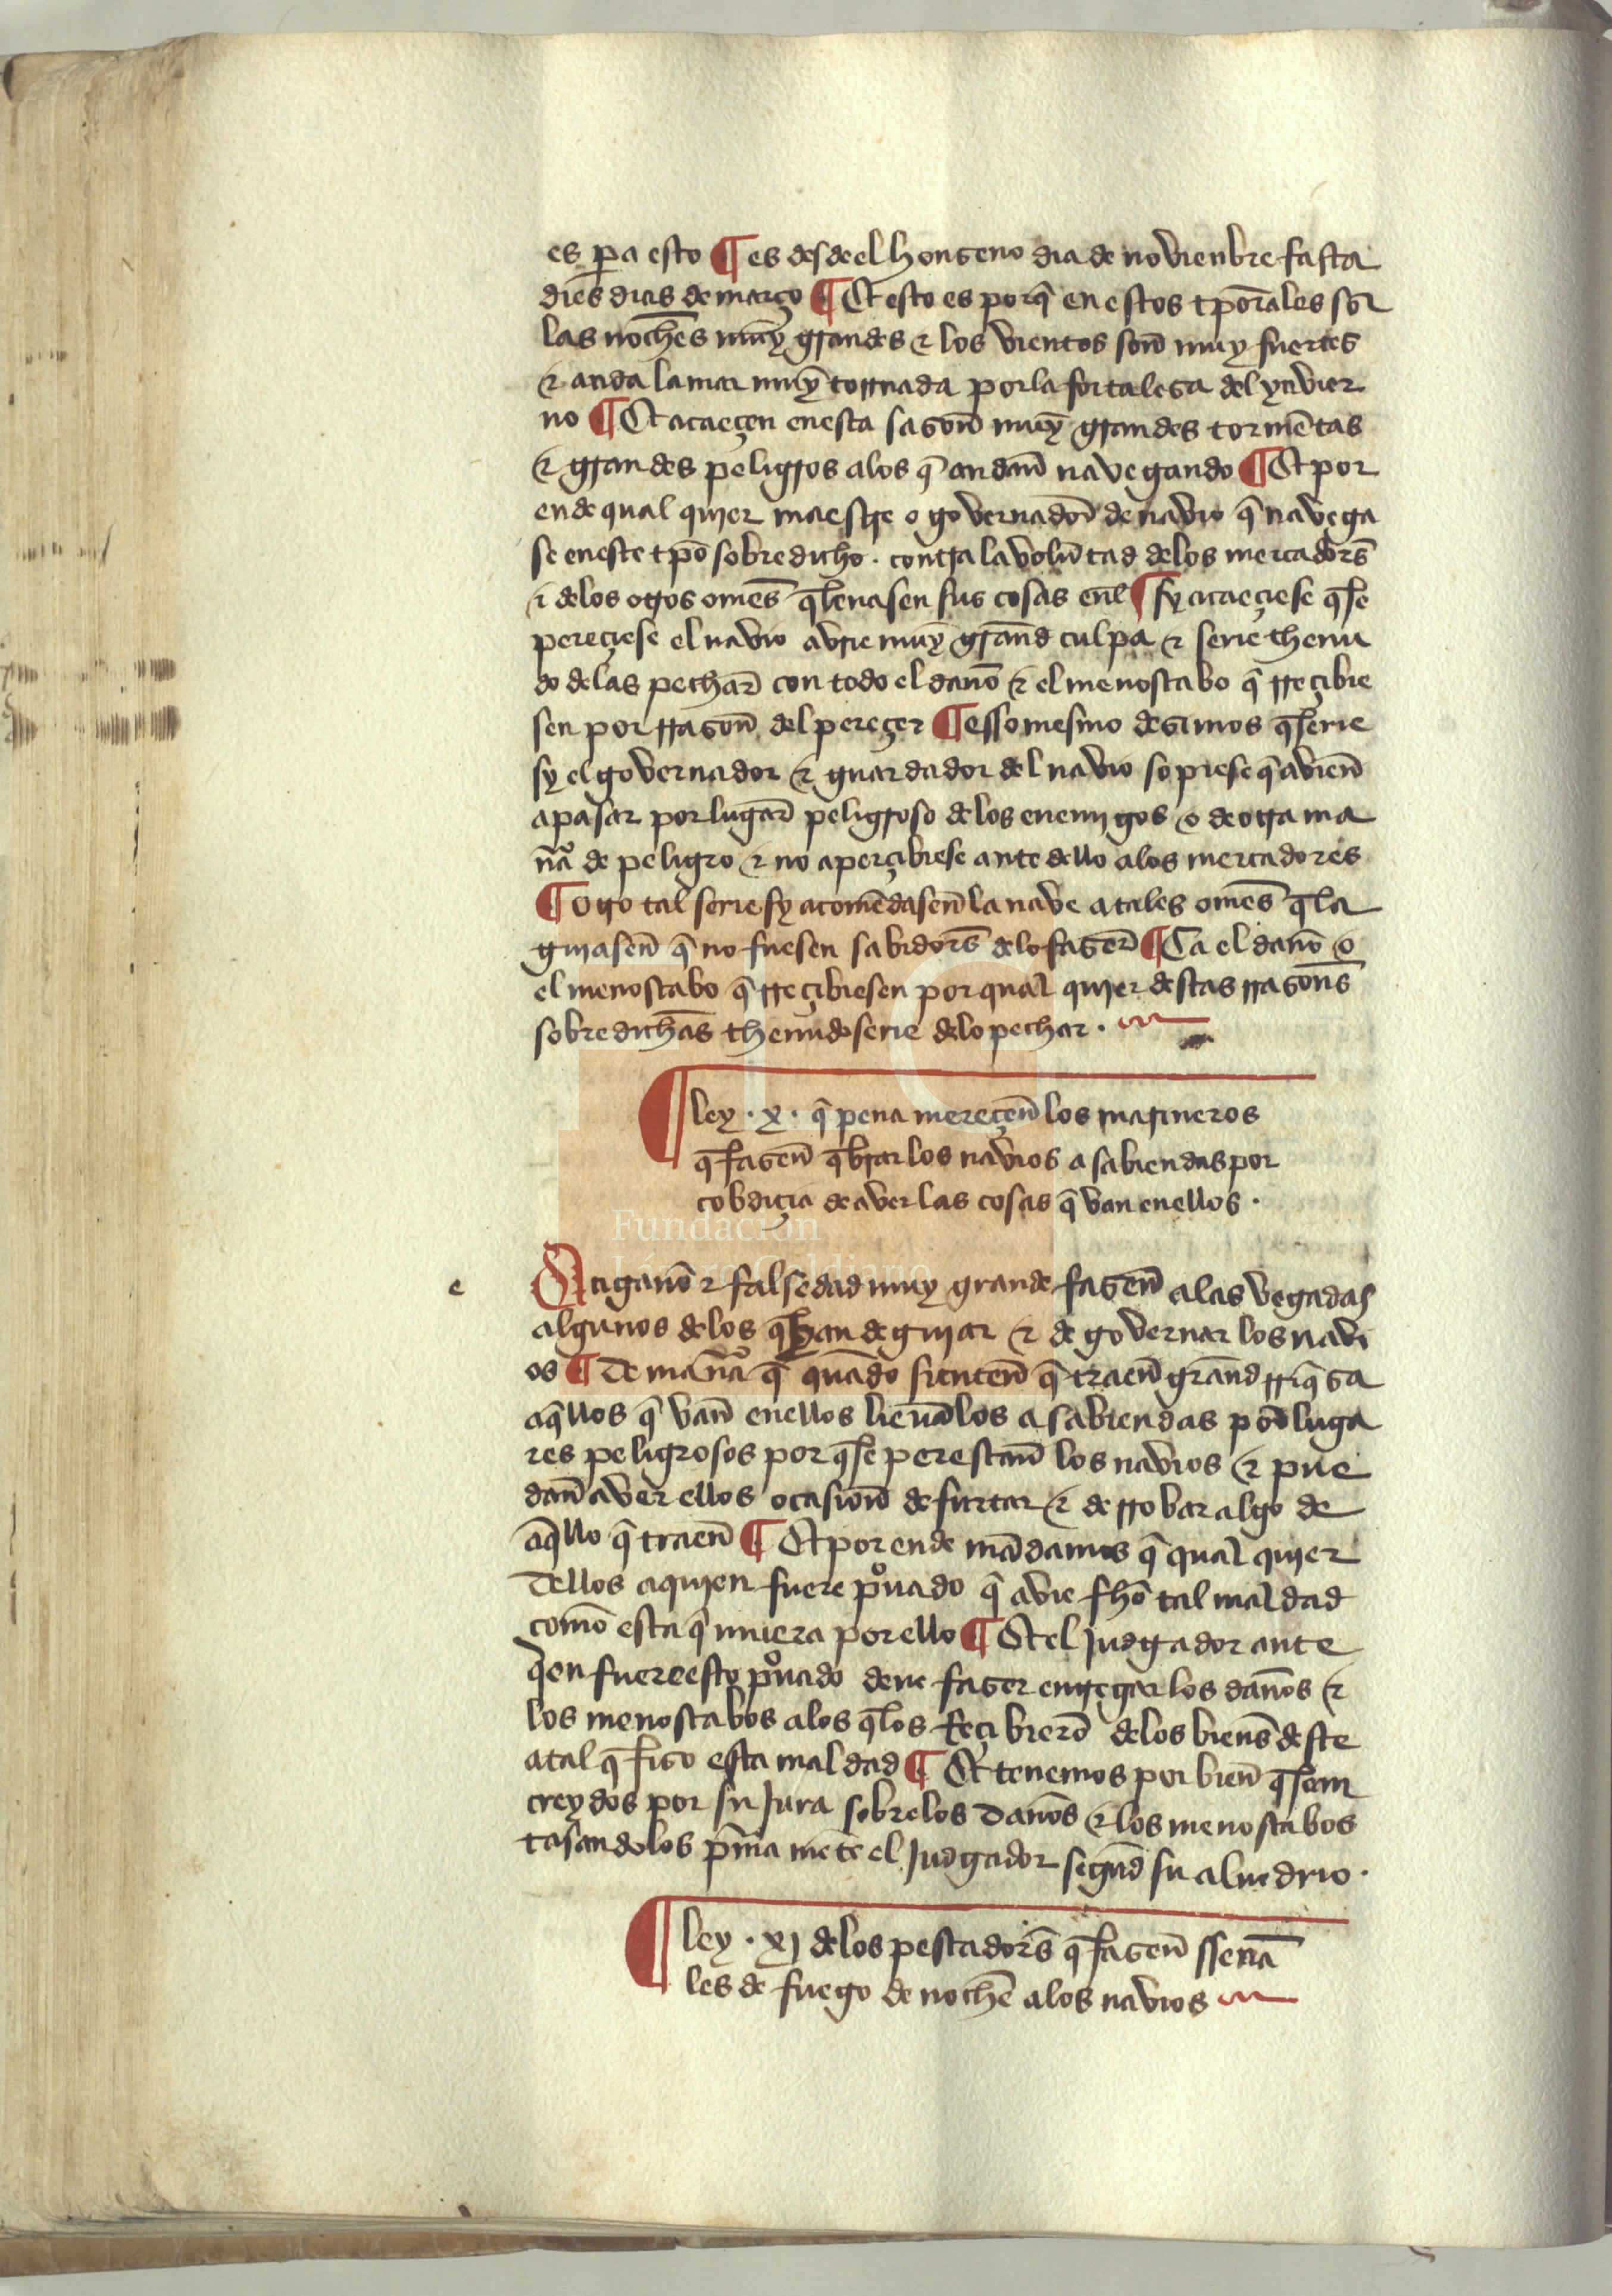 es pa esto ¶ es desdeel honseno dia de novienbre fasta
dies dias de março ¶ Et esto es porq̃ en estos tp̃orales son
las noches muy grandes & los vientos son muy fuertes
& anda la mar muy tornada por la fortalesa del ynvier
no ¶ Et acaeçen en esta sason muy grandes tormẽtas
& grandes peligros alos q̃ andan navegando ¶ Et por
ende qual quier maestre o governador de navio q̃ navega
se en este tp̃o sobredicho . contra la voluntad delos mercadors̃
& delos otros omes q̃ levasen sus cosas enl ¶ sy acaeçiese q̃ se
pereçiese el navio avrie muy grand culpa & serie thenu
do delas pechar con todo el daño & el menoscabo q̃ rreçibie
sen por rrason del pereçer ¶ esso mesmo desimos q̃ serie
sy el governador & guardador del navio sopiese q̃ avien
apasar por lugar peligroso delos enemigos o de otra ma
ñã de peligro & no aperçibiese ante dello alos mercadores
¶ otro tal serie sy acomẽdasen la nave atales omes q̃ la
guiasen q̃ no fuesen sabidors̃ delo faser ¶ Ca el daño o
el menoscabo q̃ rreçibiesen por qual quier destas rrasons̃
sobredichas thenudo serie delo pechar .
¶ ley . x . q̃ pena mereçen los marineros
q̃ fasen q̃brar los navios a sabiendas por
cobdiçia de aver las cosas q̃ van enellos .
e
Engaño & falsedad muy grande fasen alas vegadas
algunos delos q̃ han de guiar & de governar los navi
os ¶ De mañã q̃ quãdo sienten q̃ traen grand rriq̃sa
aq̃llos q̃ van enellos lievãlos a sabiendas por luga
res peligrosos por q̃ se perescan los navios & pue
dan aver ellos ocasion de furtar & de rrobar algo de
aq̃llo q̃ traen ¶ Et por ende mãdamos q̃ qual quier
dellos aquien fuere pºuado q̃ avie fho tal maldad
como esta q̃ muera por ello ¶ Et el Judgador ante
q̃en fuere esto pºuado deue faser entregar los daños &
los menoscabos alos q̃ los Reçibierõ delos biens̃ deste
atal q̃ fiso esta maldad ¶ Et tenemos por bien q̃ sean
creydos por su Jura sobre los Daños & los menoscabos
tasandolos p̃ma mẽte el Judgador segũd su aluedrio .
¶ ley . xj delos pescadors̃ q̃ fasen sseña
les de fuego de noche alos navios
Fundación
Lázaro Galdiano